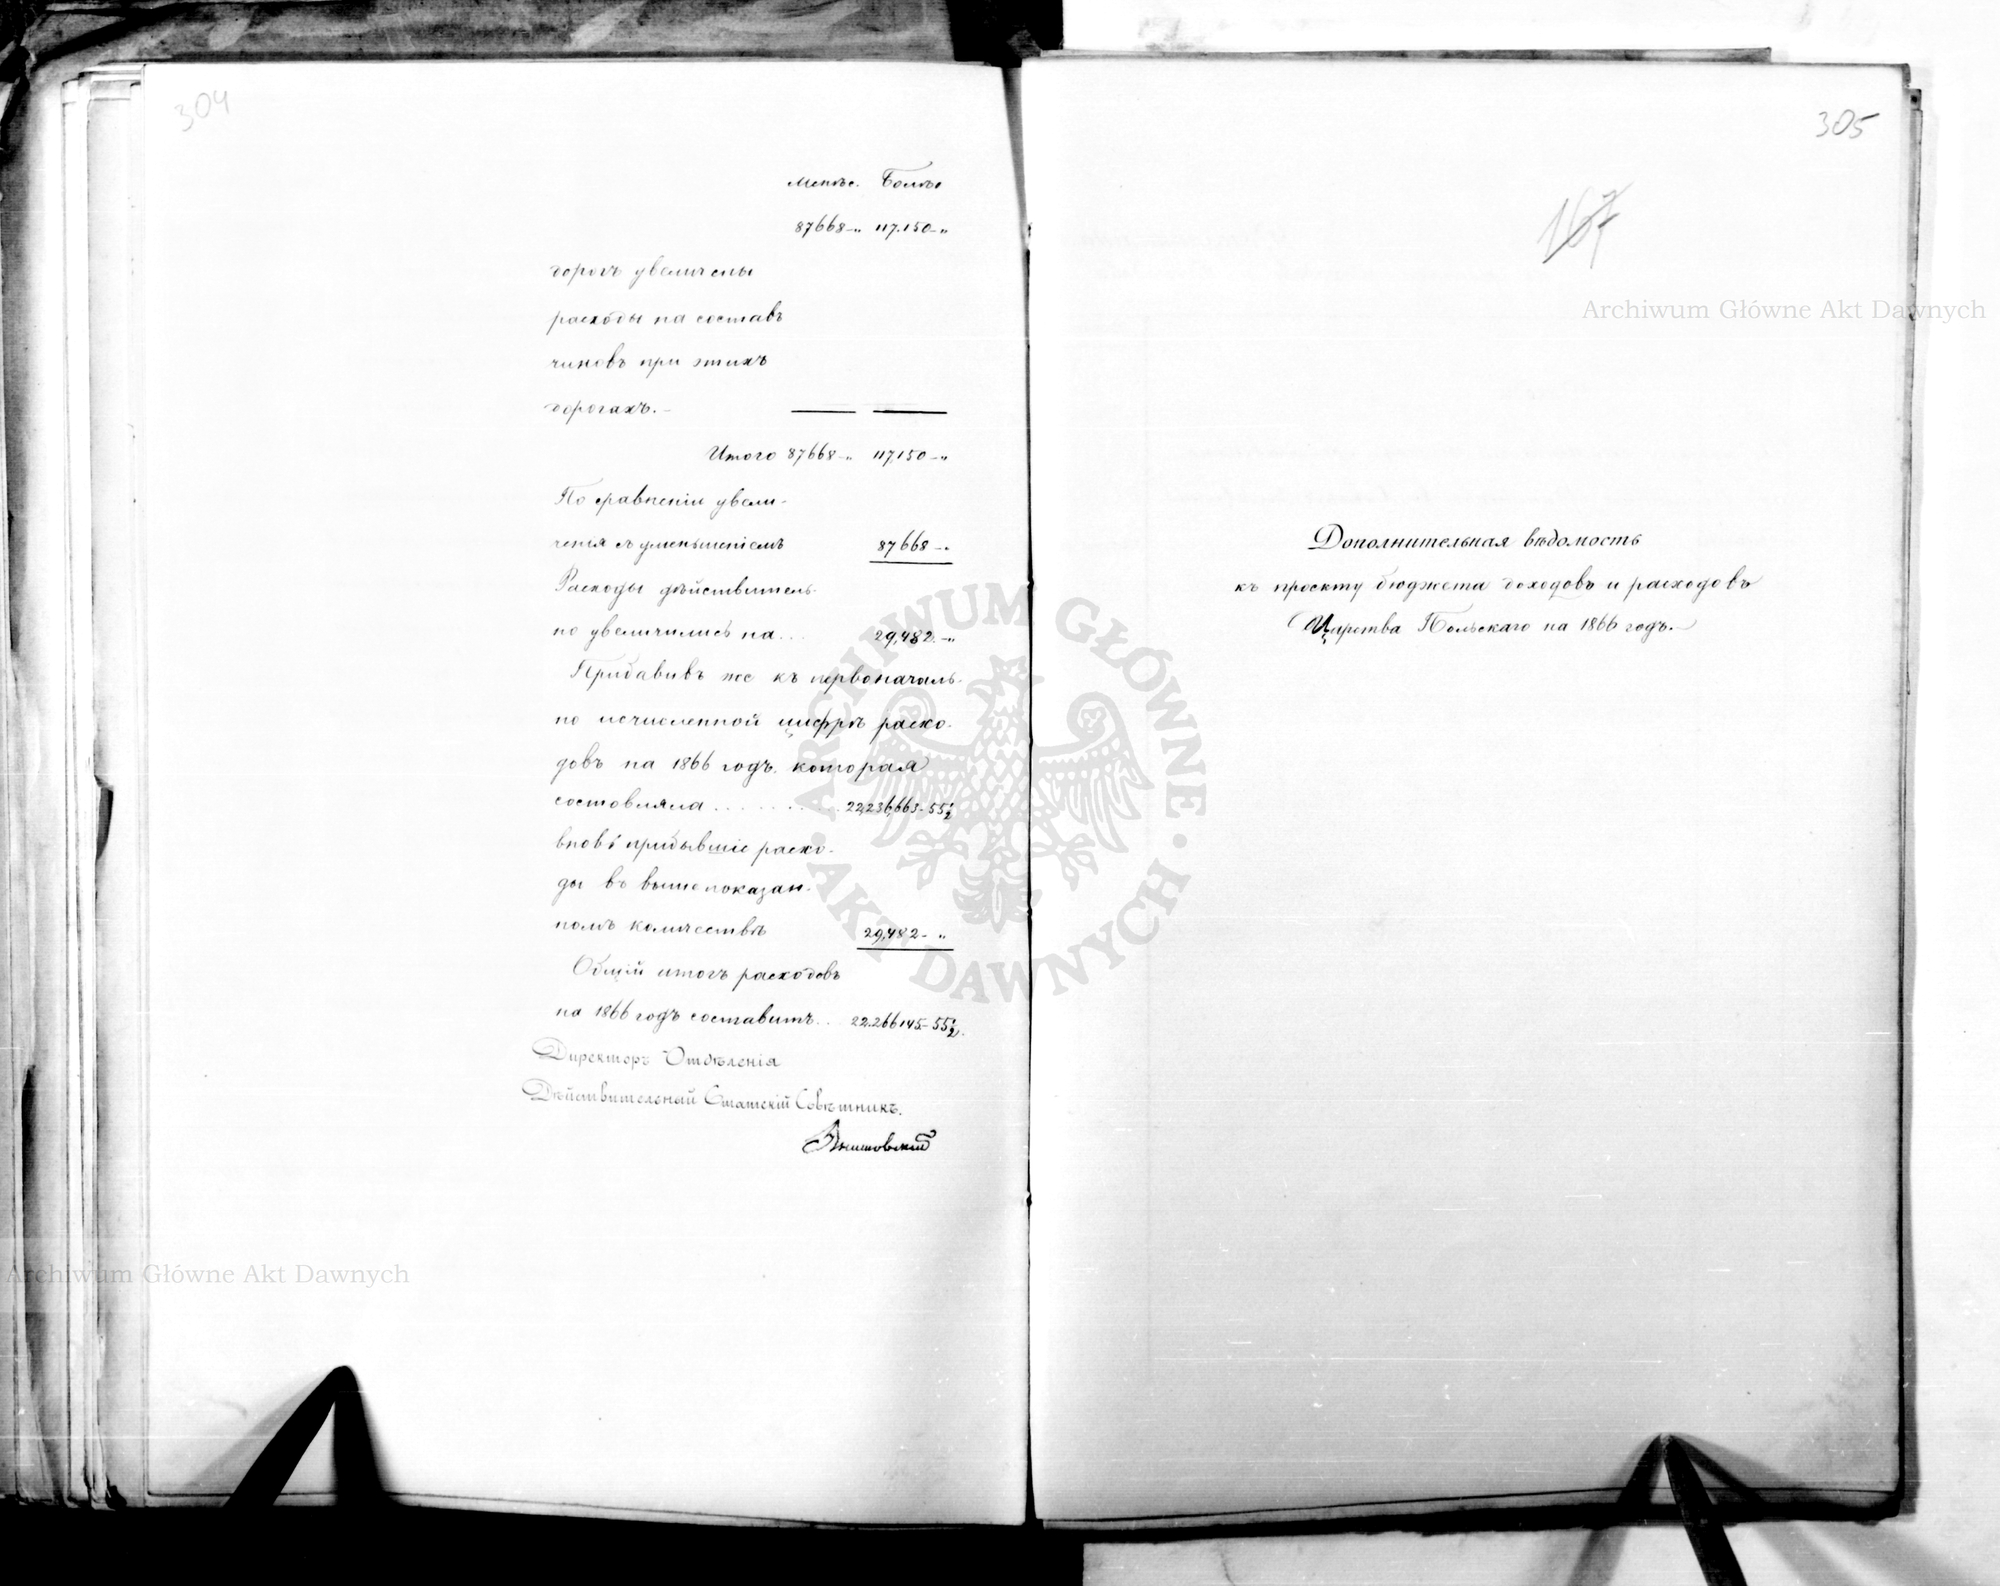 304
Менѣе. Болѣе
87668-„ 117.150-„
дорогъ увеличены
расходы на составъ
чиновъ при этихъ
дорогахъ.-
Итого 87668-„ 117,150-„
По сравненіи увели-
ченія съ уменьшеніемъ 87668-„
Расходы дѣйствитель-
но увеличились на... 29,482.-„
Прибавивъ же къ первоначаль-
но исчисленной цифрѣ расхо-
довъ на 1866 годъ, которая
составляла .......... 22,236,663-55½
вновь прибывшіе расхо-
ды въ вышепоказан-
номъ количествѣ 29,482-„
Общій итогъ расходовъ
на 1866 годъ составитъ.. 22.266145-55½.
Директоръ Отдѣленія
Дѣйствительный Статскій Совѣтникъ.
305
167
Дополнительная вѣдомость
къ проекту бюджета доходовъ и расходовъ
Царства Польскаго на 1866 годъ.-
Archiwum Główne Akt Dawnych
Archiwum Główne Akt Dawnych
ARCHIWUM GŁÓWNE AKT DAWNYCH